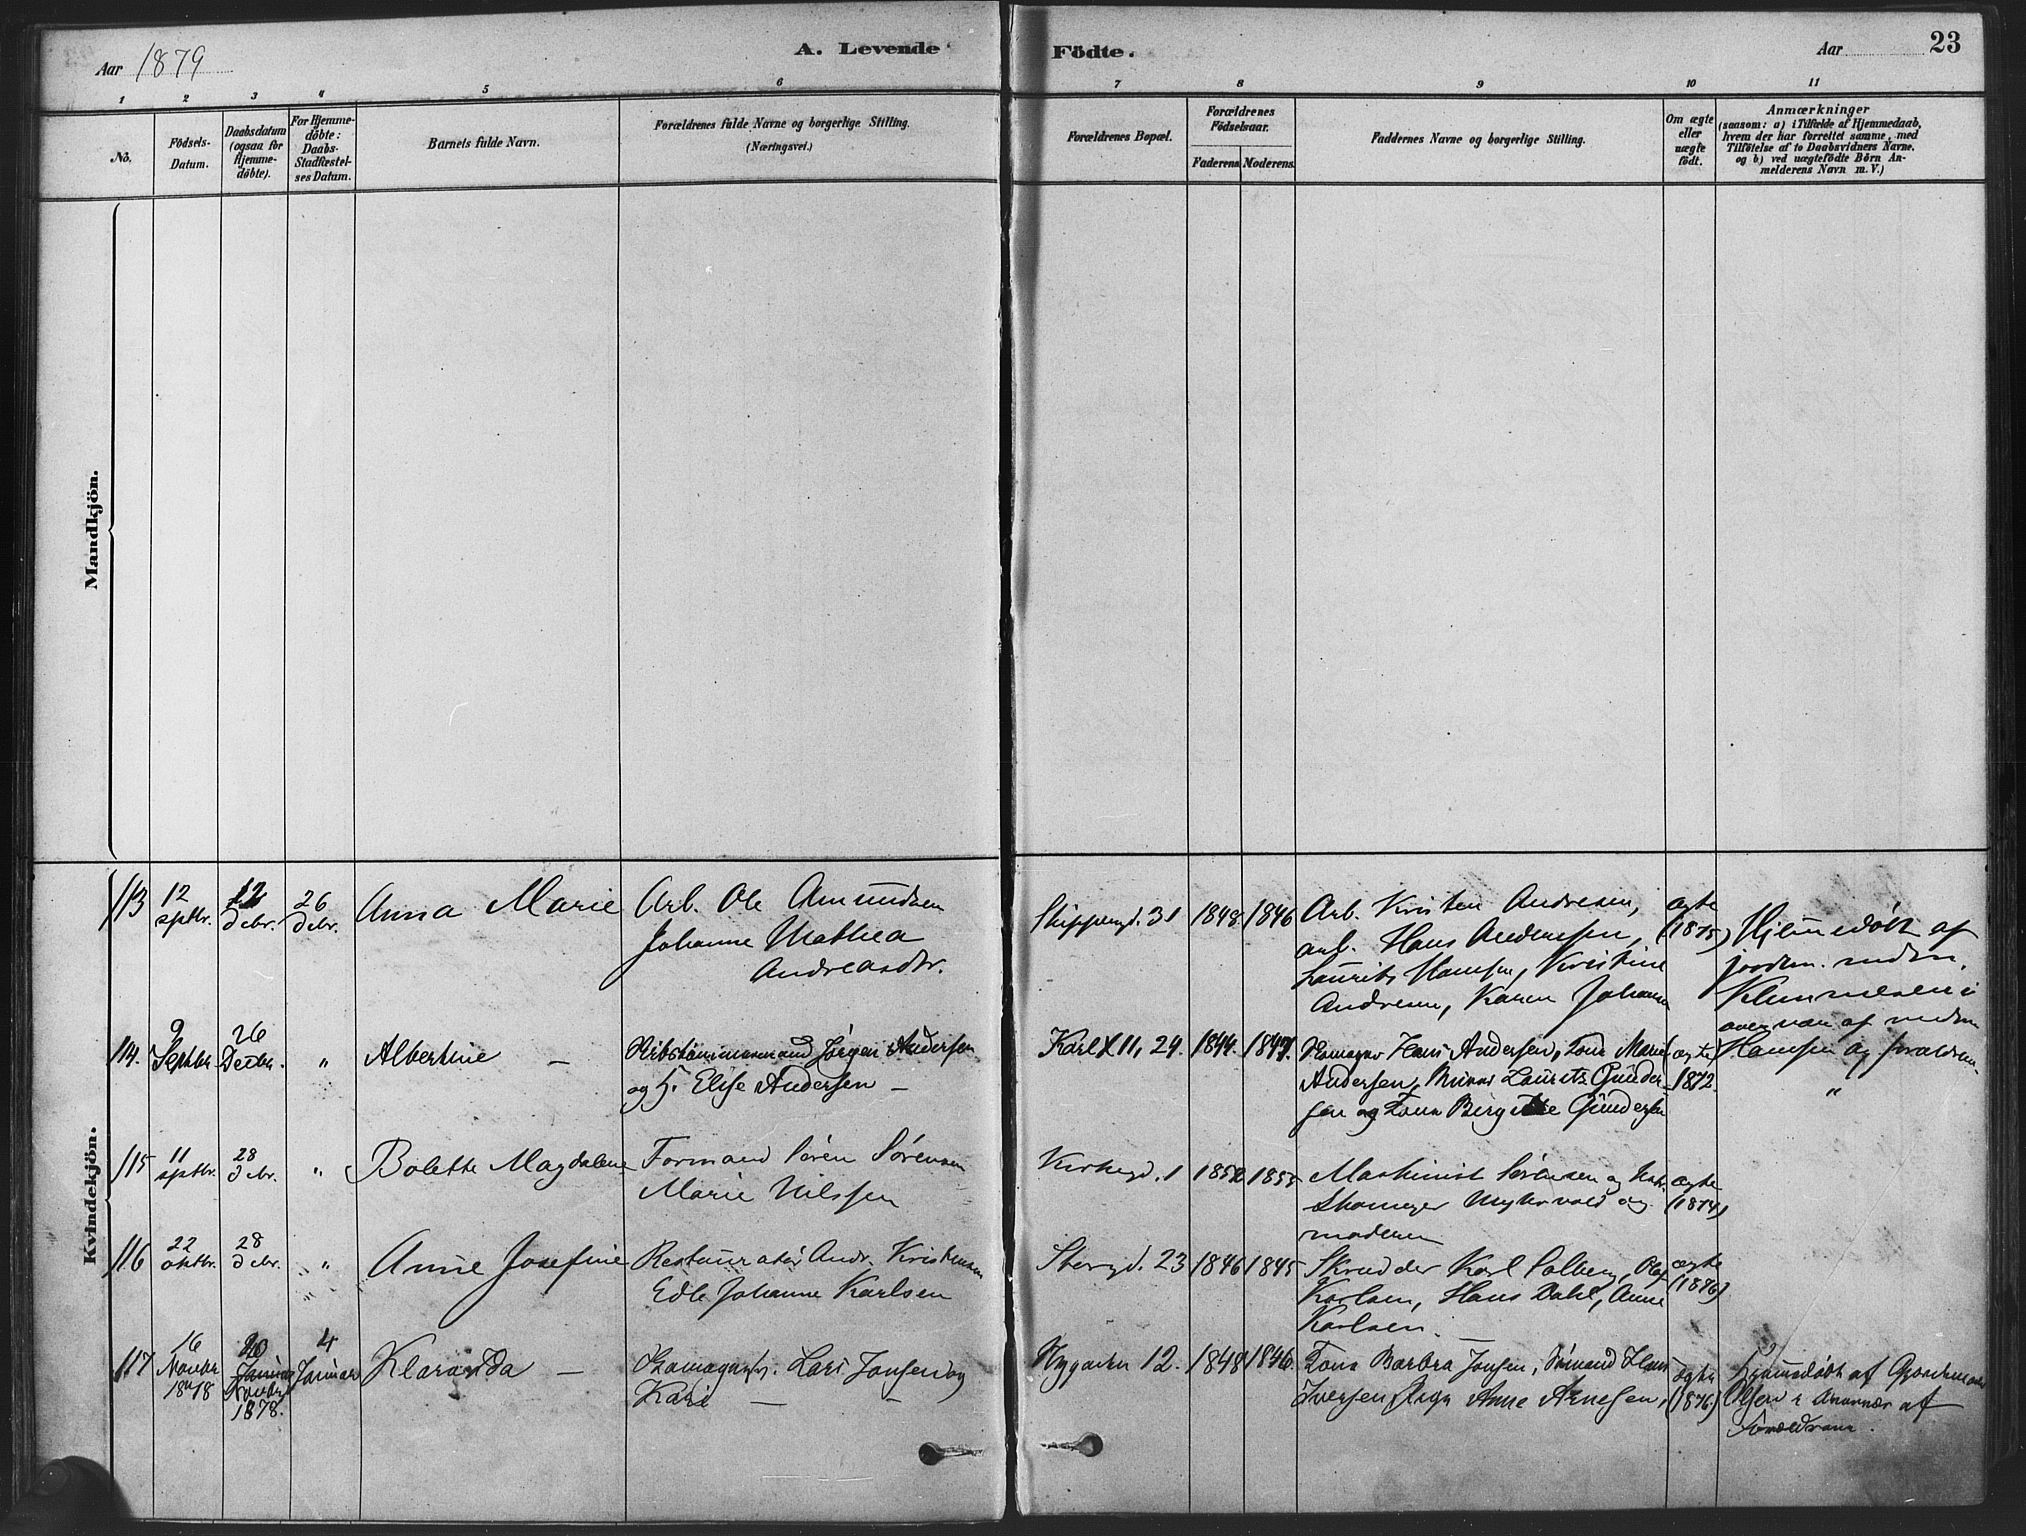 Aar 1879
A. Levende
Födte.
Aar
23
1 2 3 4 5 6 7 8 9 10 11
No.
Födsels-
Datum.
Daabsdatum
(ogsaa for
Hjemme-
döbte).
For Hjemme-
döbte:
Daabs-
Stadfæstel-
ses Datum.
Barnets fulde Navn.
Forældrenes fulde Navne og borgerlige Stilling.
(Næringsvei.)
Forældrenes Bopæl.
Forældrenes
Födselsaar.
Faderens. Moderens.
Faddernes Navne og borgerlige Stilling.
Om ægte
eller
uægte
födt.
Anmærkninger
(saasom: a) i Tilfælde af Hjemmedaab,
hvem der har forrettet samme, med
Tilföielse af to Daabsvidners Navne,
og b) ved uægtefödte Börn An-
melderens Navn m. V.)
Mandkjön.
Kvindekjön.
113 12 septbr. 12 debr. 26 debr. Anna Marie
Arb. Ole Amundsen
Johanne Mathea
Andreasdtr.
Skipperg. 31 1848 1846
Arb. Kristen Andresen,
arb. Hans Andersen,
Laurits Hansen, Kristine
Andresen, Karen Johanne
ægte
(1875)
Hjemmedøbt af
jordm. madm.
i
overvær af madm
Hansen og forældrene.
114. 9 Septbr. 26 Decbr. " Albertine —
Jørgen Andersen
og H. Elise Andersen —
Karl XII, 24. 1844. 1847.
Hans Andersen, Tone Marie
Andersen, Laurits Gunder-
sen og Tone Birgitte Gundersen
ægte
1872.
"
115 11 septbr. 28 debr. " Bolette Magdalene
Formand Søren Sørensen
Marie Nilssen
Kirkegd. 1 1852 1853
Maskinist Sørensen og
Skomager og
moderen
ægte
(1874)
116 22 oktbr. 28 debr. " Anne Josefine
Restauratør Andr. Kristensen
Edle Johanne Karlsen
Storgd. 23 1846 1845
Skrædder Karl Solberg, Olaf
Karlsen, Hans Dahl, Anne
Karlsen. —
ægte
(1876)
117 16 Novbr 1878 20 Januar Novbr 1878. 4 Januar Klaranda —
Lars Jansen og
Kari — —
Nygaden 12. 1848 1846.
Tone Barbra Jansen, Sømand Hans
Iversen, Anne Arnesen,
ægte
(1876)
Hjemmedøbt af
Olsen i Overvær af
Forældrene.